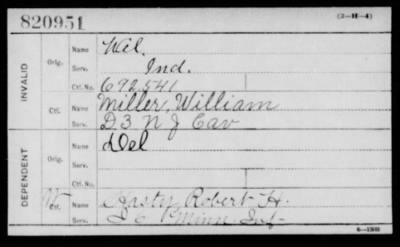 820951 (3-H-4)
INVALID
Orig. Name Wil.
Serv. Ind.
Ctf. No. 692541
Ctf. Name Miller, William
Serv. D. 3 N J Cav
DEPENDENT
Orig. Name Del
Serv.
Ctf. No.
Ctf. Name Hasty, Robert H.
Serv. Minn Inf